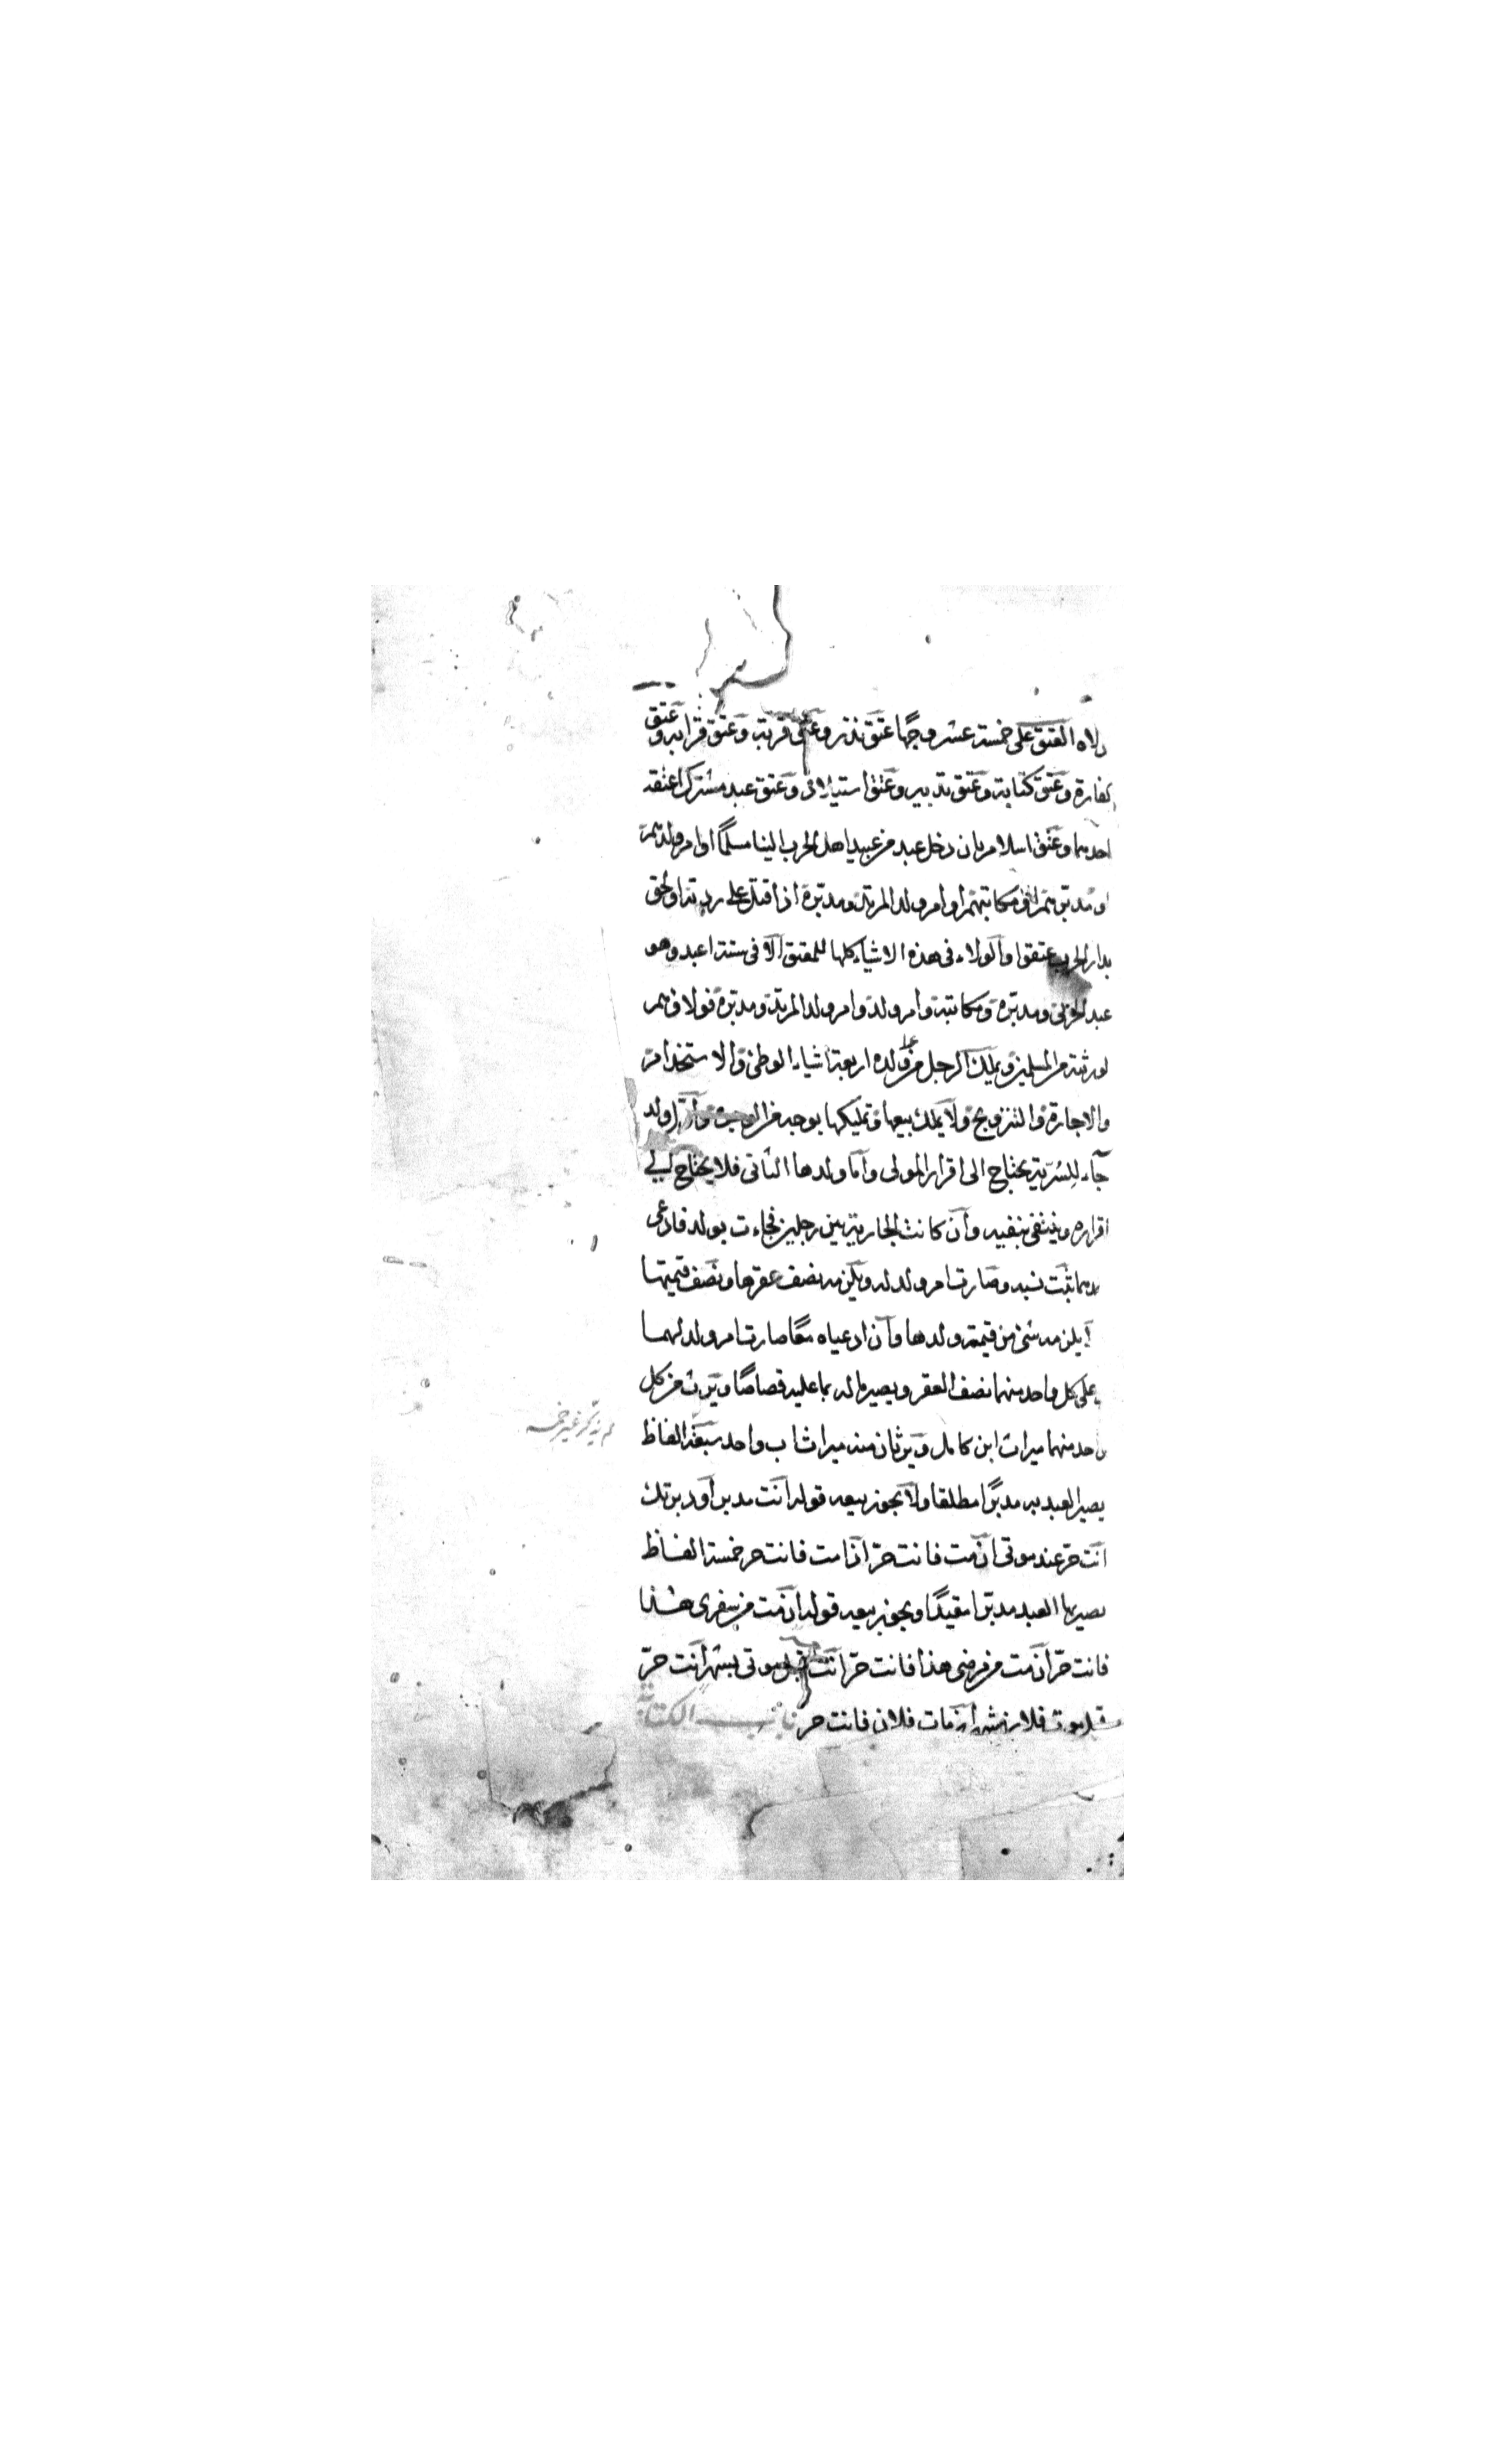 ولاه العتق على خمسة عشر وجها عتق نذر وعتق قربة وعتق قرابة وعتق
كفارة وعتق كتابة وعتق تدبير وعتق استيلاد وعتق عبد مشترك اعتقه
احدهما وعتق اسلام بان دخل عبد من عبيد اهل الحرب الينا مسلما او ام ولدهم
او مدبرهم او مكاتبهم او ام ولد المرتد ومدبره اذا قتل على ردته او لحق
بدار الحرب عتقوا والولاء فى هذه الاشياء كلها للمعتق الا فى ستة اعبد وهو
عبد الحربى ومدبره ومكاتبه وام ولده وام ولد المرتد ومدبره فولاوهم
لورثته من المسلمين ويملك الرجل من ام ولده اربعة اشياء الوطئ والاستخدام
والاجارة والتزويج ولا يملك بيعها وتمليكها بوجه من الوجوه واول ولد
جاء للسرية يحتاج الى اقرار المولى واما ولدها الثانى فلا يحتاج الى
اقراره وينتفى بنفيه وان كانت الجارية بين رجلين فجاءت بولد فادعى
احدهما ثبت نسبه وصارت ام ولد له ويلزمه نصف عقرها ونصف قيمتها
لا يلزمه شئ من قيمة ولدها وان ادعياه معا صارت ام ولد لهما
على كل واحد منهما نصف العقر ويصير ماله بما عليه قصاصا ويرث من كل
واحد منهما ميراث ابن كامل ويرثان منه ميراث اب واحد سبعة الفاظ
يصير العبد به مدبرا مطلقا ولا يجوز بيعه قوله انت مدبر او دبرتك
انت حر عند موتى ان مت فانت حر اذا مت فانت حر خمسة الفاظ
يصير بها العبد مدبرا مقيدا ويجوز بيعه قوله ان مت من سفرى هذا
فانت حر ان مت من مرضى هذا فانت حر انت حر قبل موتى بشهر انت حر
قبل موت فلان بشهر ان مات فلان فانت حر باب الكتابة